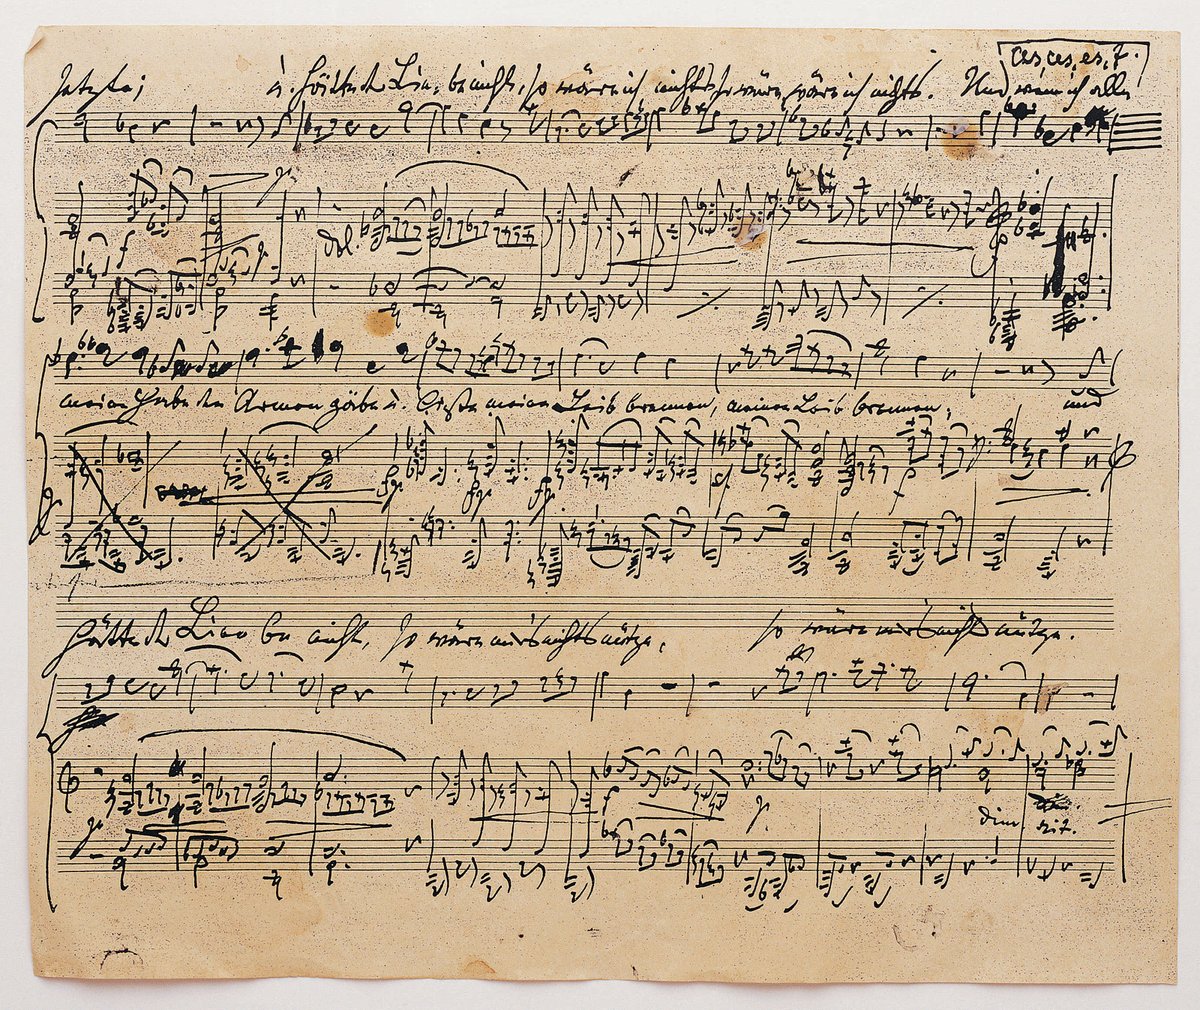 ces, ces, es, f.
setzte; u. hätte der Liebe nicht, so wäre ich nichts so wäre, wäre ich nichts. Und wenn ich alle
dol.
meine Habe den Armen gäbe u. ließe meinen Leib brennen, meinen Leib brennen, und
hätte der Liebe nicht, so wäre mir's nichts nütze, so wäre mir's nichts nütze.
dim rit.